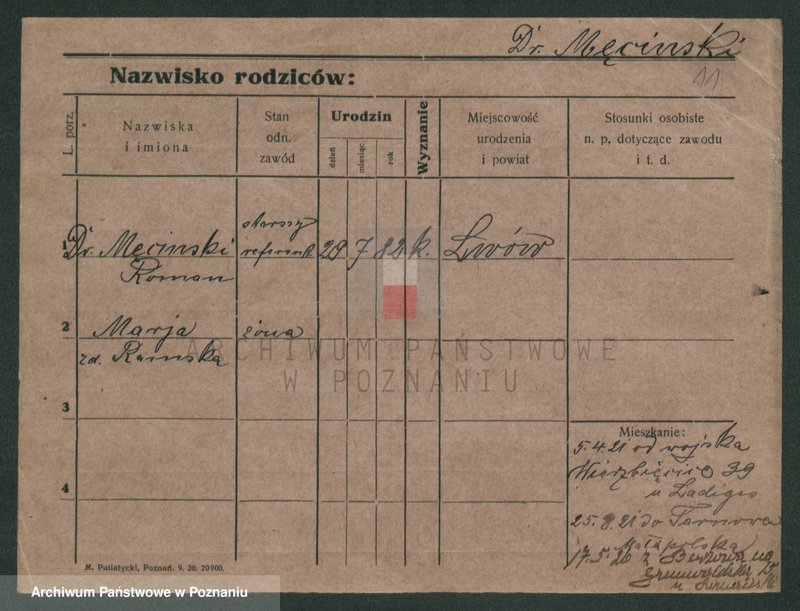 Dr. Męcinski
11
Nazwisko rodziców:
L. porz.
Nazwiska
i imiona
Stan
odn.
zawód
Urodzin
dzień
miesiąc
rok
Wyznanie
Miejscowość
urodzenia
i powiat
Stosunki osobiste
n. p. dotyczące zawodu
i t. d.
1 Dr. Męcinski
Roman
starszy
referent
29 7 82 k. Lwów
2 Marja
zd. Ramska
żona
3
4
Mieszkanie:
5.4.21 od wojska
Wierzbięcice 39
u Ladigo
25.8.21 do Tarnowa
Małapolska
17.5.26 z
Grunwaldzką
M. Putiatycki, Poznań. 9. 20. 20000.
ARCHIWUM PAŃSTWOWE
W POZNANIU
Archiwum Państwowe w Poznaniu